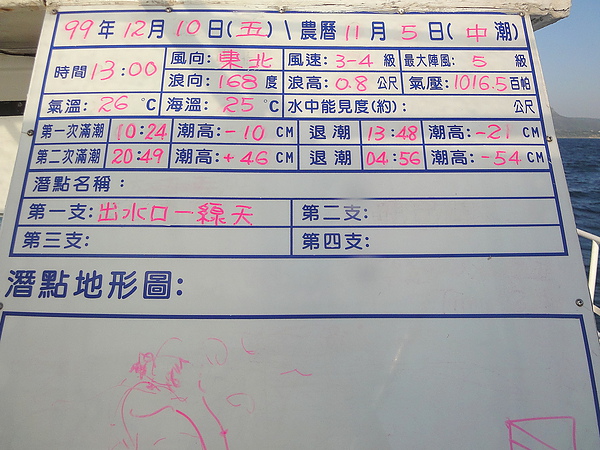 99年12月10日(五)\農曆11月5日(中潮)
時間13:00 風向:東北 風速:3-4級 最大陣風:5級
浪向:168度 浪高:0.8公尺 氣壓:1016.5百帕
氣溫:26°C 海溫:25°C 水中能見度(約): 公尺
第一次滿潮 10:24 潮高:-10CM 退潮 13:48 潮高:-21CM
第二次滿潮 20:49 潮高:+46CM 退潮 04:56 潮高:-54CM
潛點名稱:
第一支:出水口一線天 第二支:
第三支: 第四支:
潛點地形圖: